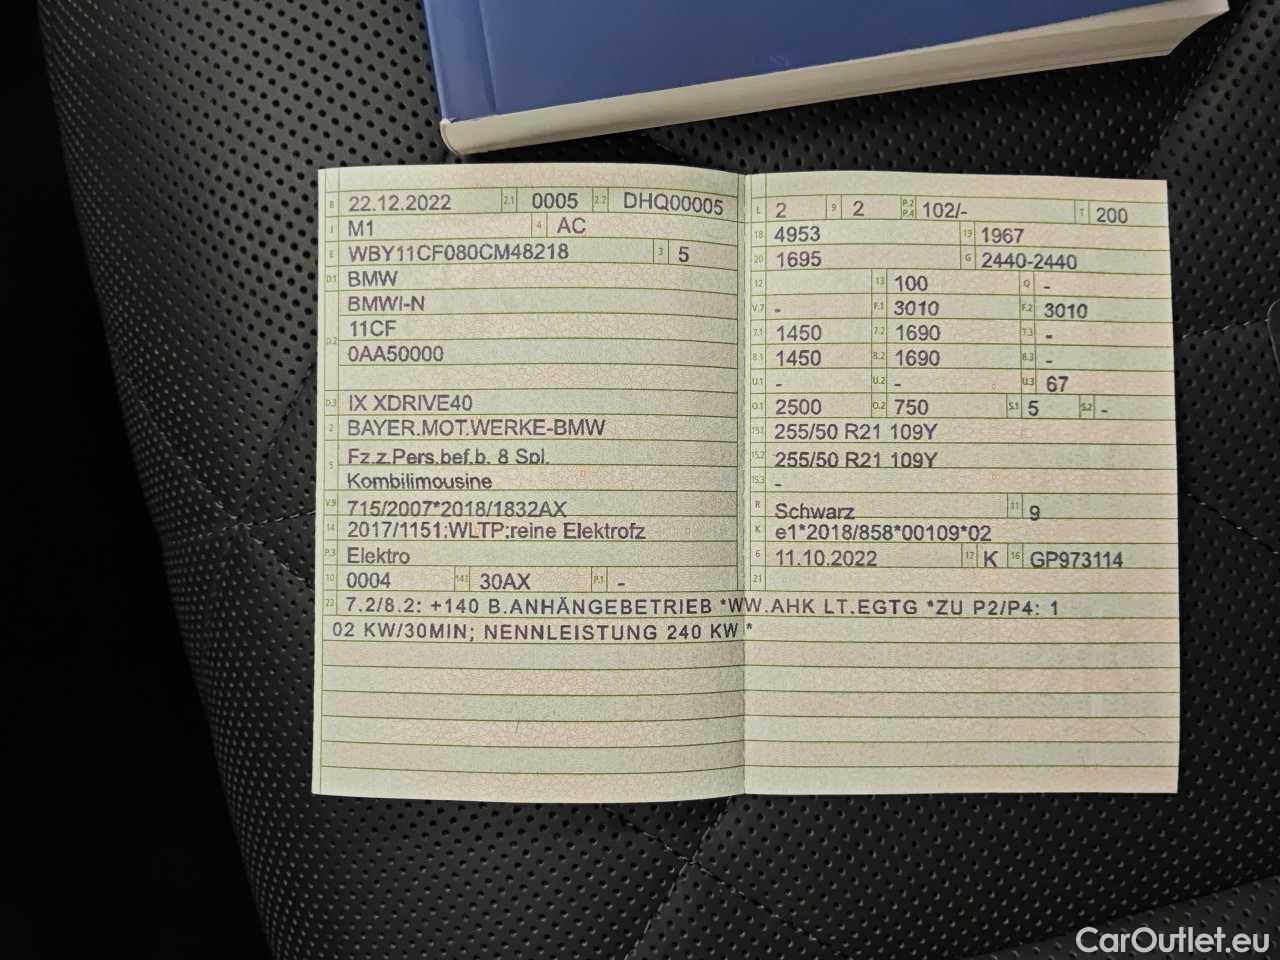 B 22.12.2022 2.1 0005 2.2 DHQ00005
J M1 4 AC
E WBY11CF080CM48218 3 5
D.1 BMW
BMWI-N
D.2 11CF
0AA50000
D.3 IX XDRIVE40
2 BAYER.MOT.WERKE-BMW
5 Fz.z.Pers.bef.b. 8 Spl.
Kombilimousine
V.9 715/2007*2018/1832AX
14 2017/1151;WLTP;reine Elektrofz
P.3 Elektro
10 0004 14.1 30AX P.1 -
L 2 9 2 P.2 P.4 102/- T 200
18 4953 19 1967
20 1695 G 2440-2440
12 13 100 Q -
V.7 - F.1 3010 F.2 3010
7.1 1450 7.2 1690 7.3 -
8.1 1450 8.2 1690 8.3 -
U.1 - U.2 - U.3 67
O.1 2500 O.2 750 S.1 5 S.2 -
15.1 255/50 R21 109Y
15.2 255/50 R21 109Y
15.3 -
R Schwarz 11 9
K e1*2018/858*00109*02
6 11.10.2022 17 K 16 GP973114
21
22 7.2/8.2: +140 B.ANHÄNGEBETRIEB *WW.AHK LT.EGTG *ZU P2/P4: 1
02 KW/30MIN; NENNLEISTUNG 240 KW *
CarOutlet.eu